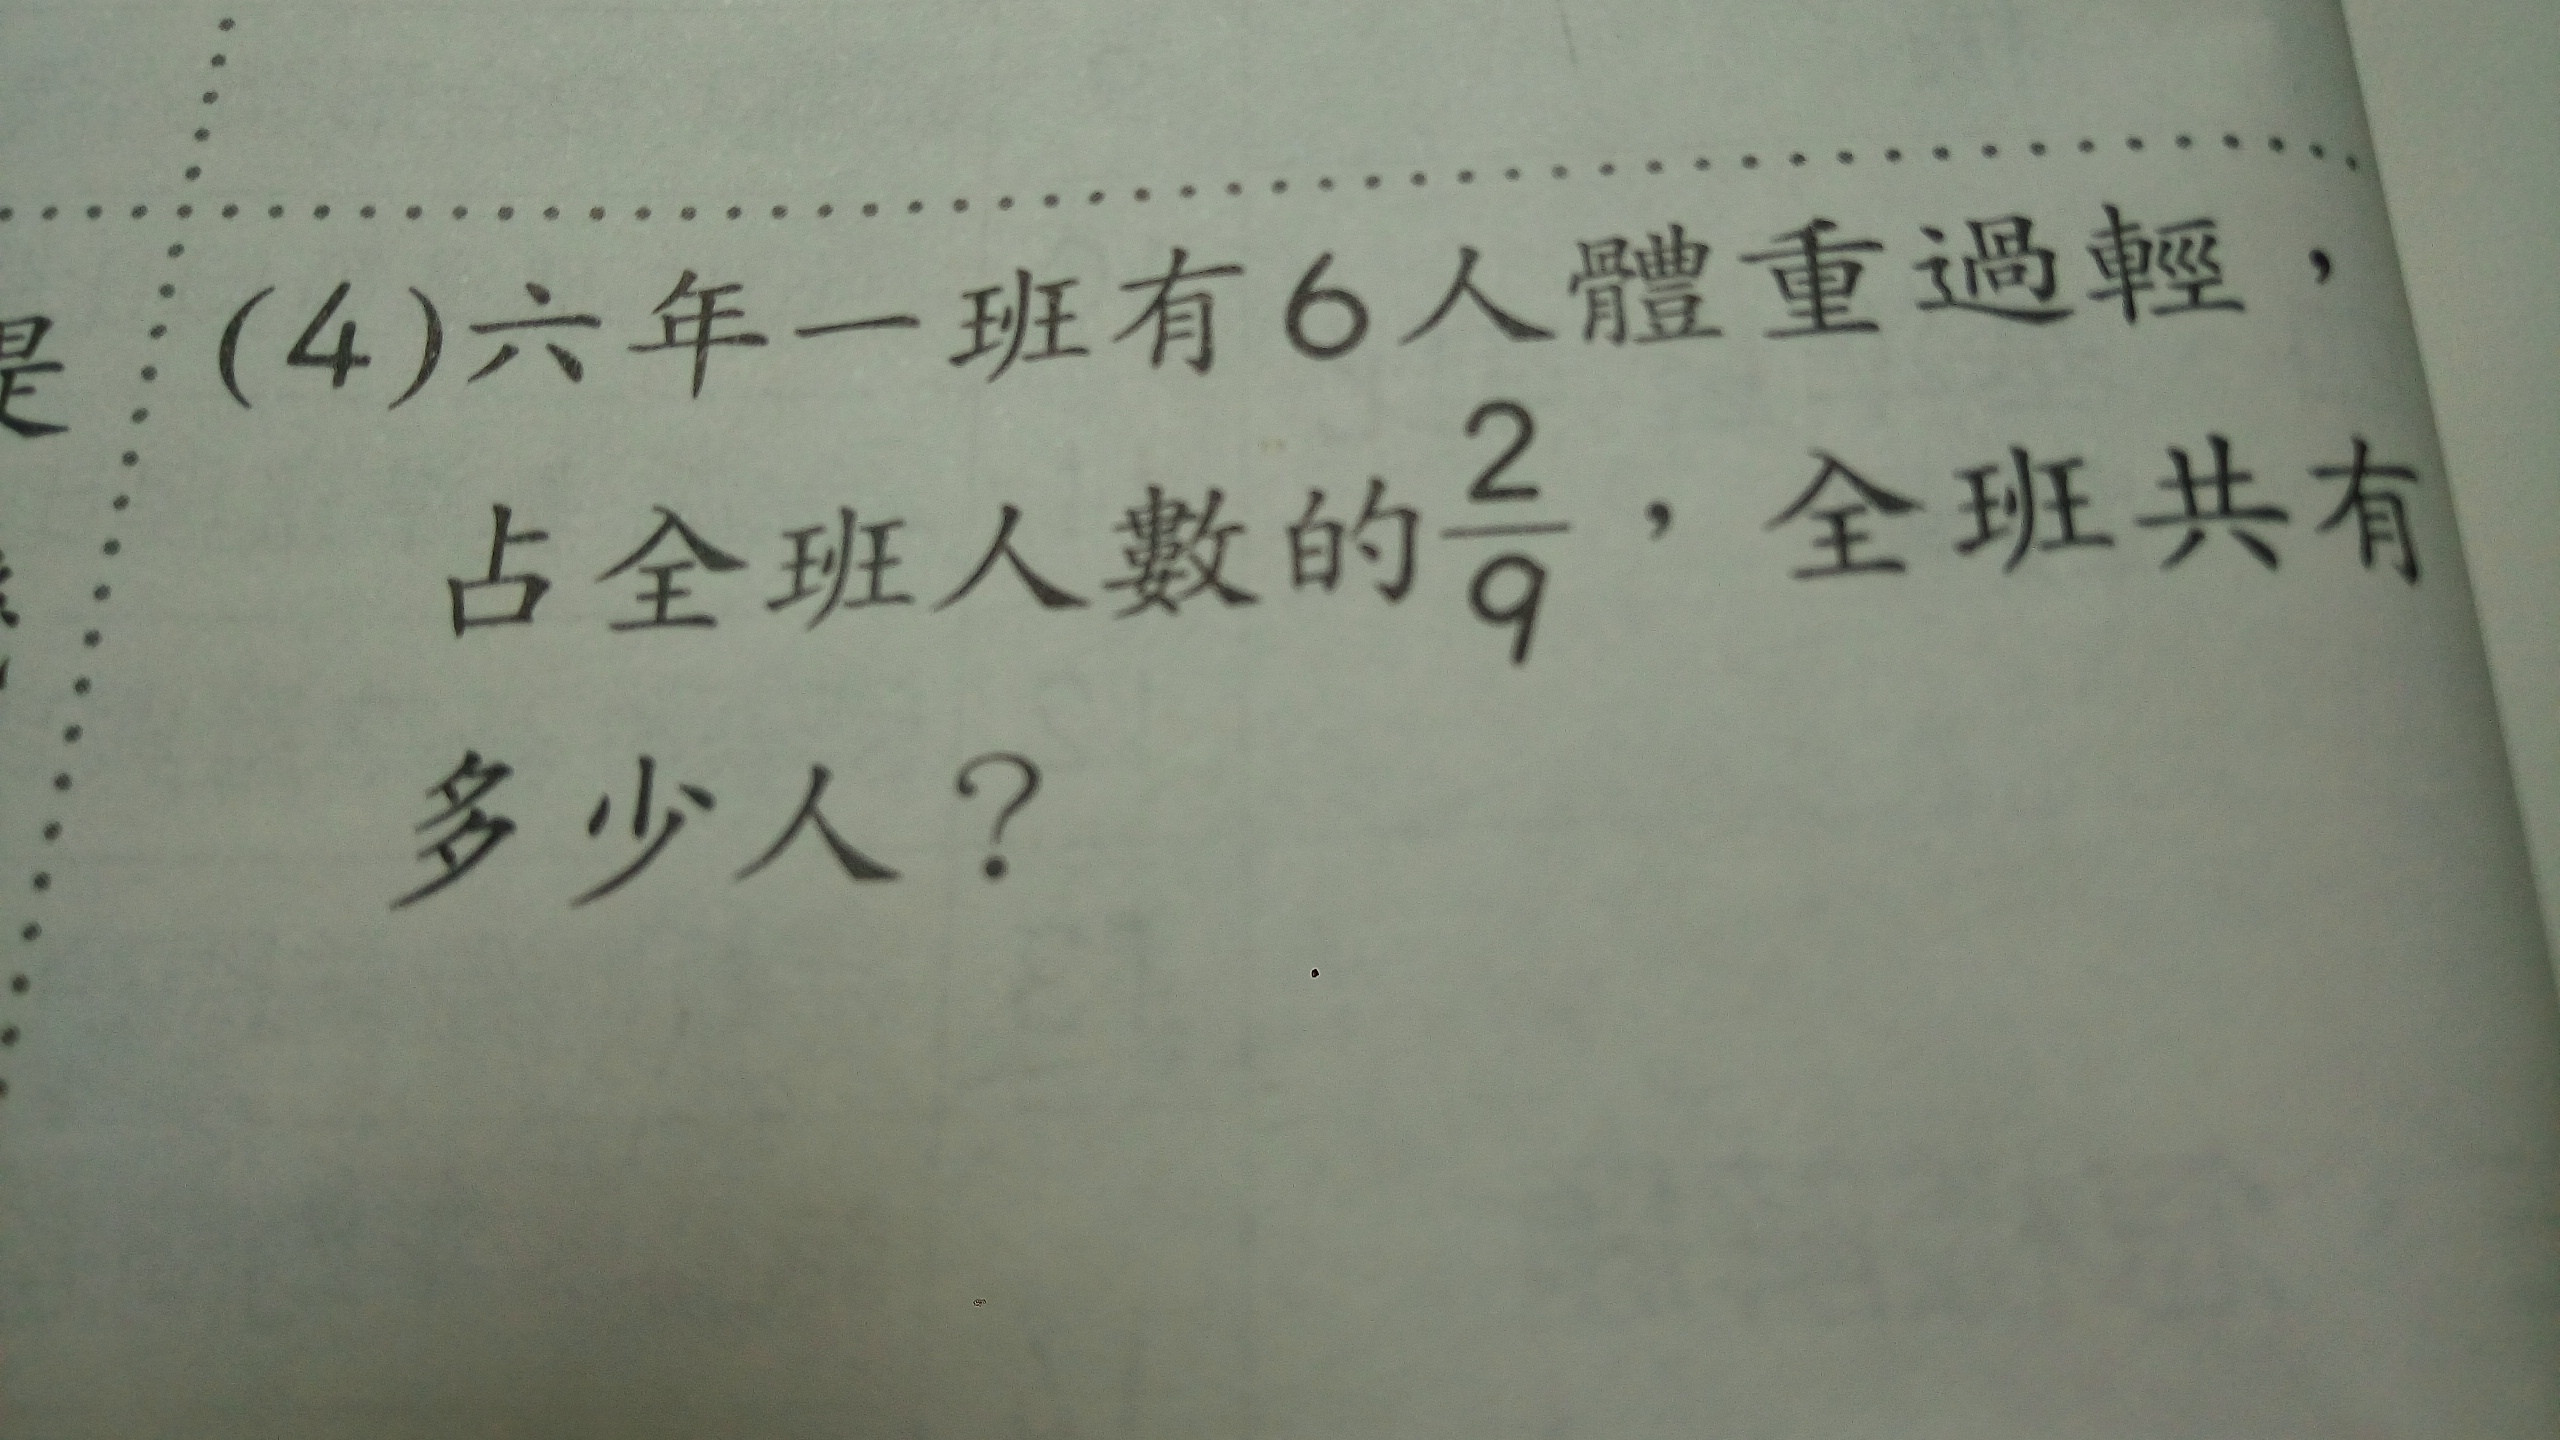 是
(4)六年一班有6人體重過輕，
占全班人數的2/9，全班共有
多少人？